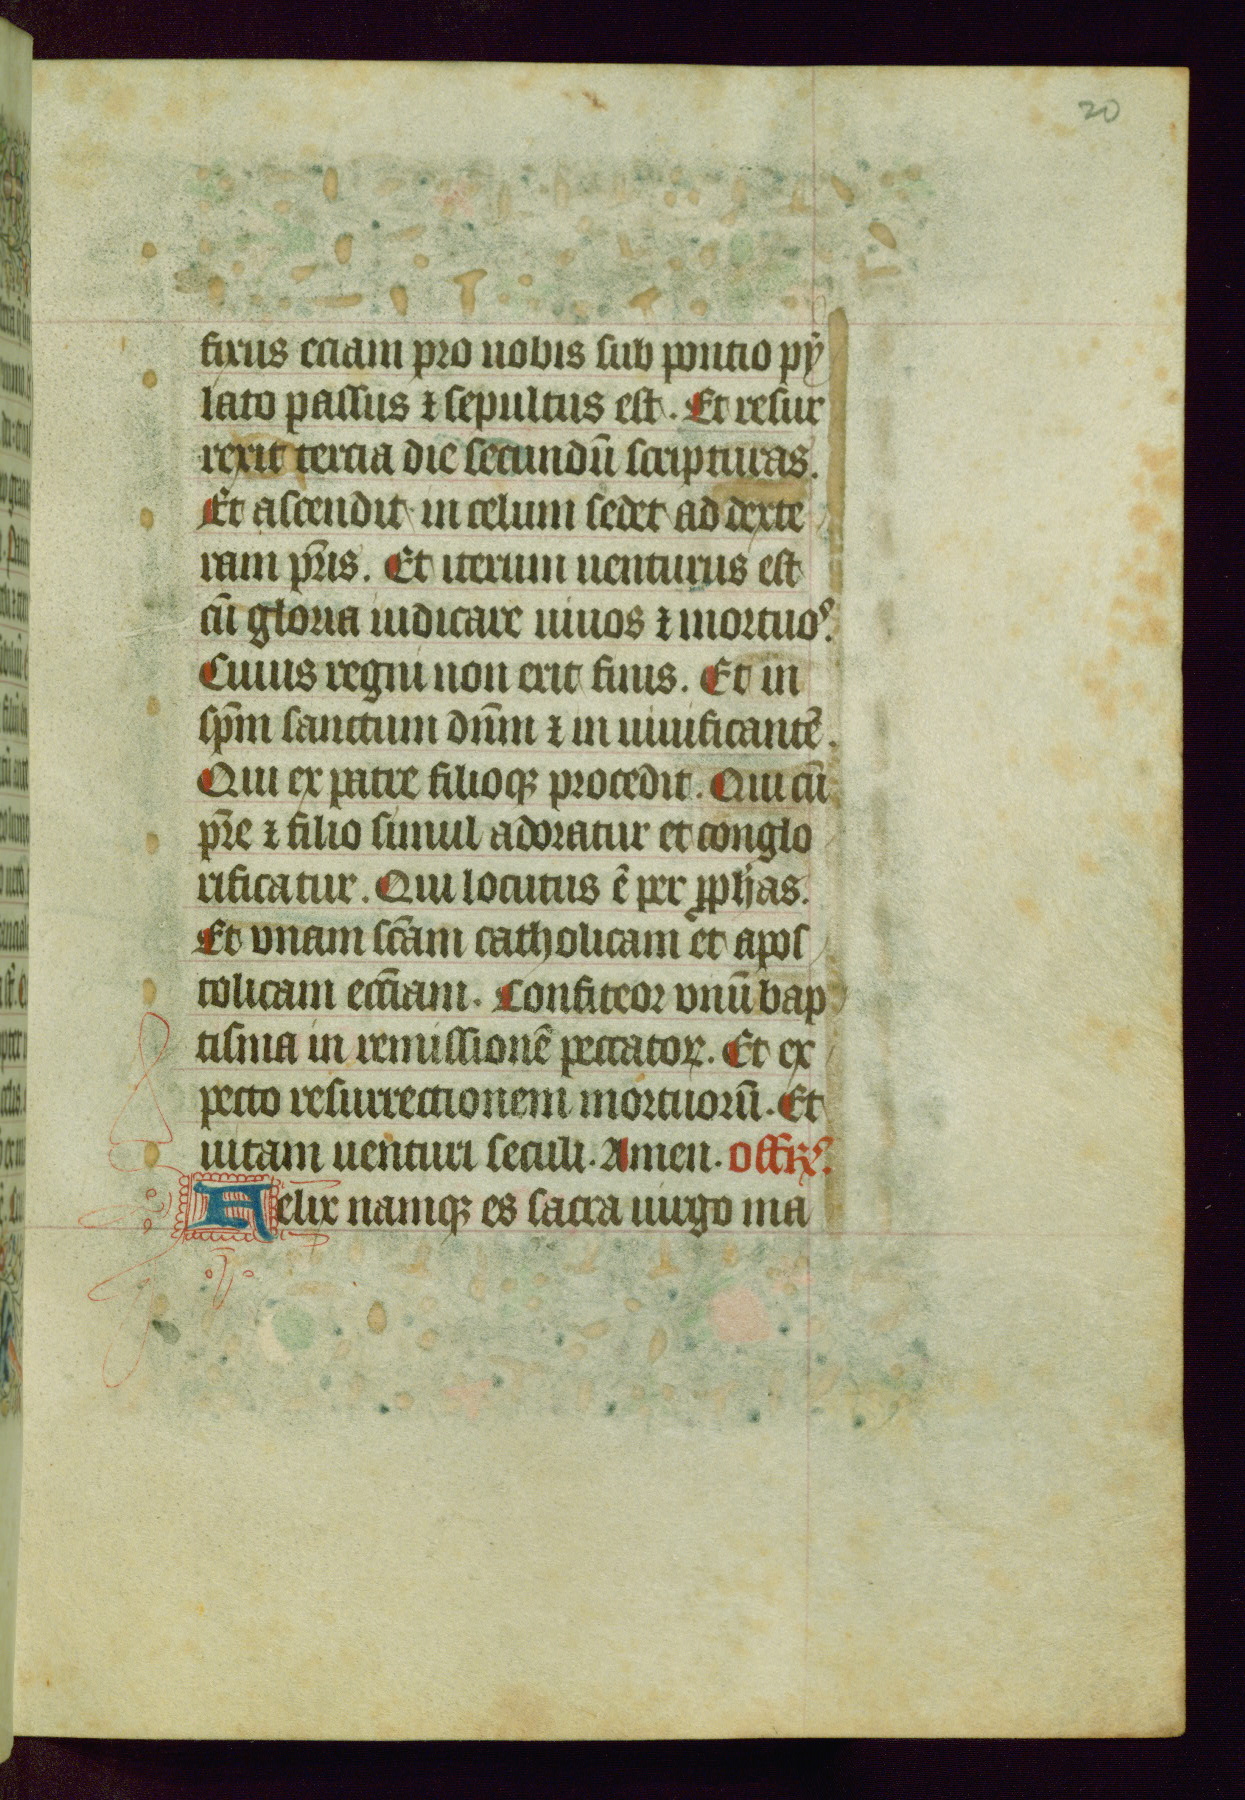 20
fixus eciam pro nobis sub pontio pÿ
lato passus ⁊ sepultus est. Et resur
rexit tercia die secundū scripturas.
Et ascendit in celum sedet ad dexte
ram pr̄is. Et iterum uenturus est
cū gloria iudicare uiuos ⁊ mortuoˢ.
Cuius regni non erit finis. Et in
sp̄m sanctum dn̄m ⁊ in uiuificantē.
Qui ex patre filioqꝫ procedit. Qui cū
pr̄e ⁊ filio simul adoratur et conglo
rificatur. Qui locutus ē per ꝓph̄as.
Et vnam sc̄am catholicam et apos
tolicam eccl̄iam. Confiteor vnū bap
tisma in remissionē peccatoꝝ. Et ex
pecto resurrectionem mortuorū. Et
uitam uenturi seculi. Amen. offr̄ˢ.
Aelix namqꝫ es sacra uirgo ma